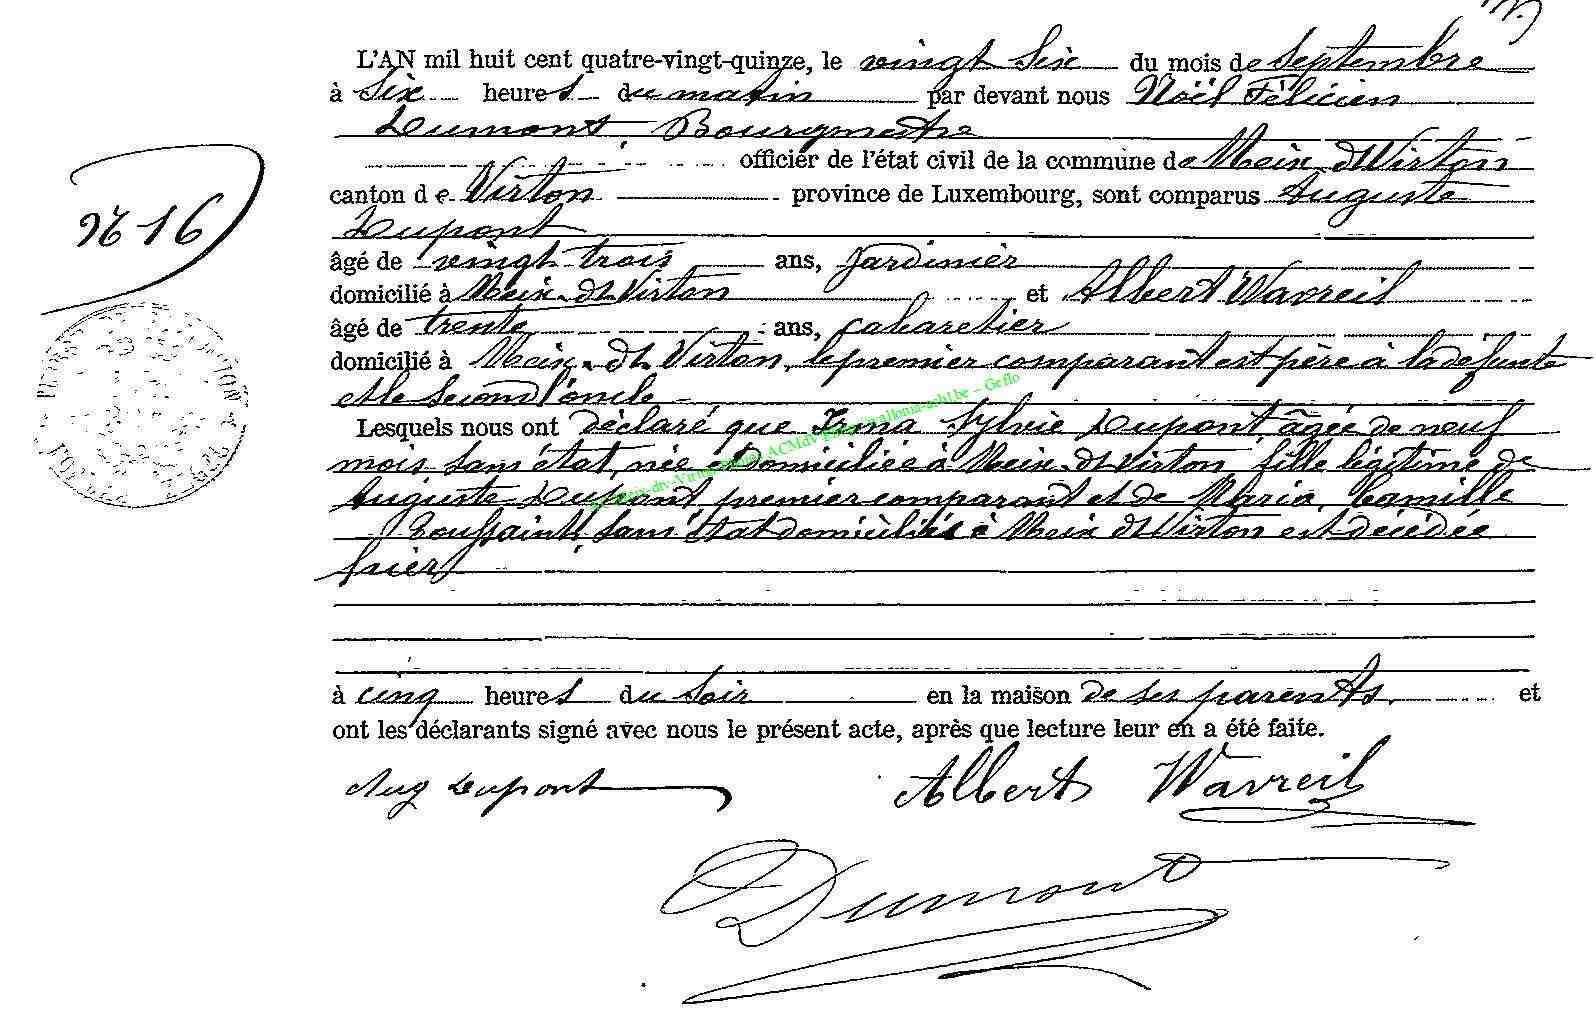 L'AN mil huit cent quatre-vingt-quinze, le vingt six du mois de Septembre
à Six heures du matin par devant nous Noël Félicien
Dumont, Bourgmestre
officier de l'état civil de la commune de Meix-dt-Virton
canton de Virton province de Luxembourg, sont comparus Auguste
Dupont
N° 16
âgé de vingt trois ans, Jardinier
domicilié à Meix-dt-Virton et Albert Wavreil
âgé de trente ans, cabaretier
domicilié à Meix-dt-Virton, le premier comparant est père à la défunte
et le second l'oncle
Lesquels nous ont déclaré que Irma Sylvie Dupont, âgée de neuf
mois sans état, née et domiciliée à Meix-dt-Virton, fille légitime de
Auguste Dupont, premier comparant et de Maria, Camille
Toussaint, sans état domiciliés à Meix dt Virton est décédée
hier
à cinq heures du soir en la maison de ses parents. et
ont les déclarants signé avec nous le présent acte, après que lecture leur en a été faite.
Aug Dupont Albert Wavreil
Dumont